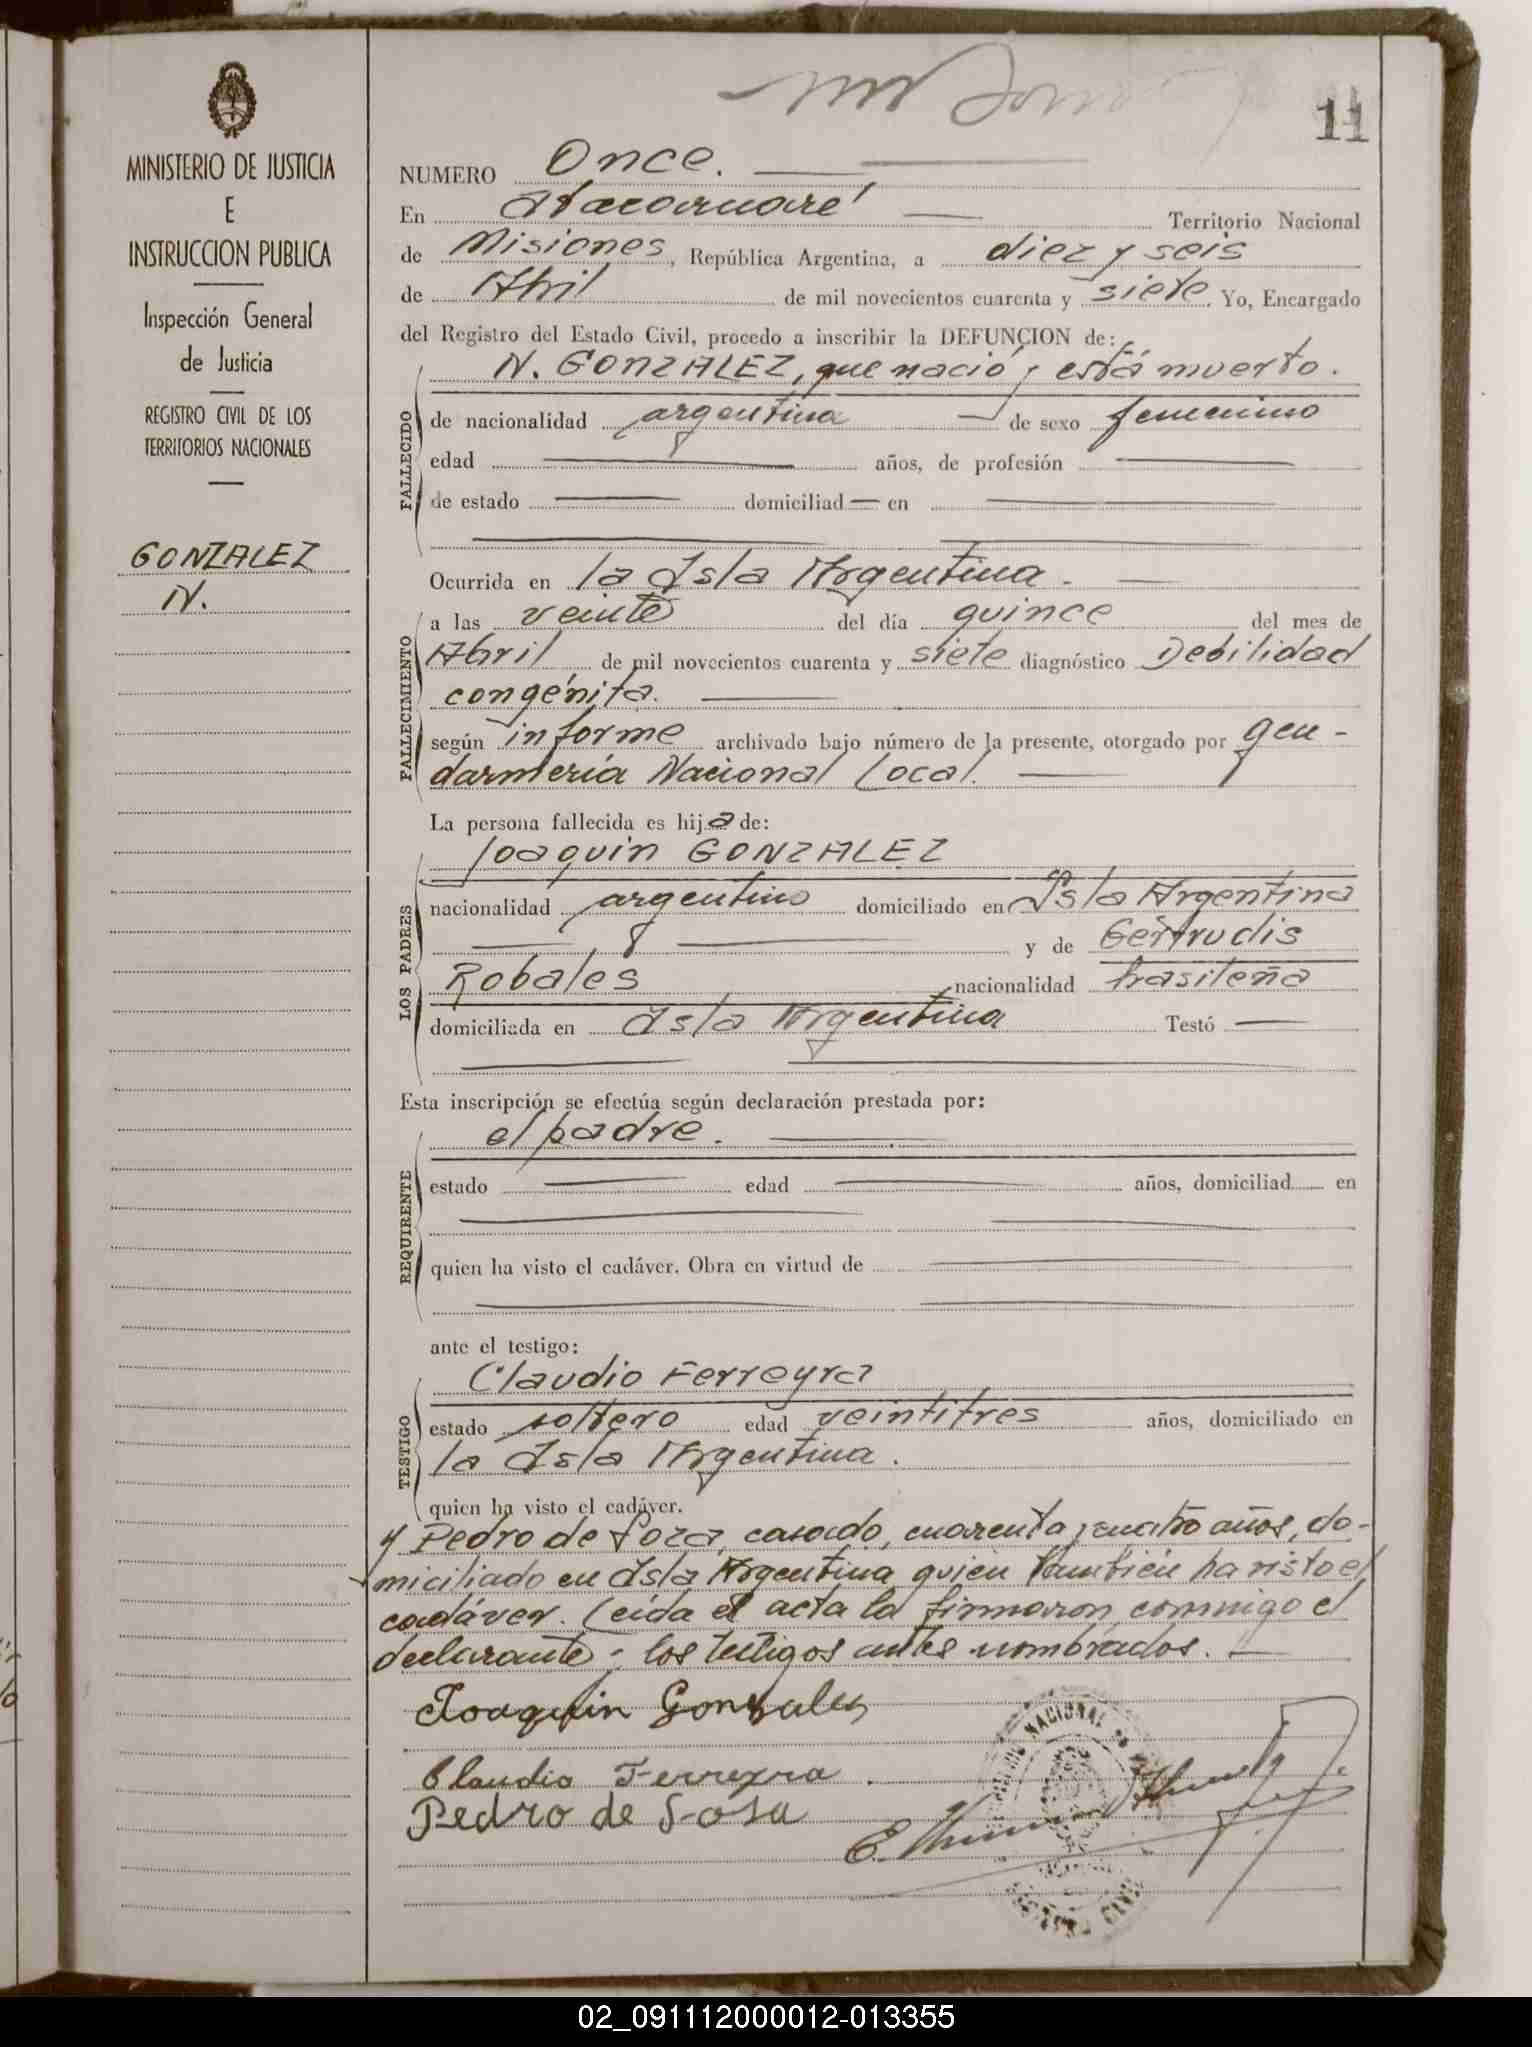 11
MINISTERIO DE JUSTICIA
E
INSTRUCCION PUBLICA
Inspección General
de Justicia
REGISTRO CIVIL DE LOS
TERRITORIOS NACIONALES
GONZALEZ
N.
NUMERO Once.
En Itacaruaré Territorio Nacional
de Misiones, República Argentina, a diez y seis
de Abril de mil novecientos cuarenta y siete. Yo, Encargado
del Registro del Estado Civil, procedo a inscribir la DEFUNCION de:
N. GONZALEZ, que nació y está muerto.
FALLECIDO
de nacionalidad argentina de sexo femenino
edad años, de profesión
de estado domiciliad en
Ocurrida en la Isla Argentina.
FALLECIMIENTO
a las veinte del día quince del mes de
Abril de mil novecientos cuarenta y siete diagnóstico Debilidad
congénita.
según informe archivado bajo número de la presente, otorgado por gen-
darmería Nacional Local.
La persona fallecida es hija de:
LOS PADRES
Joaquin GONZALEZ
nacionalidad argentino domiciliado en Isla Argentina
y de Gertrudis
Robales nacionalidad brasileña
domiciliada en Isla Argentina Testó
Esta inscripción se efectúa según declaración prestada por:
REQUIRENTE
el padre.
estado edad años, domiciliad en
quien ha visto el cadáver. Obra en virtud de
ante el testigo:
TESTIGO
Claudio Ferreyra
estado soltero edad veintitres años, domiciliado en
la Isla Argentina.
quien ha visto el cadáver.
y Pedro de Soza, casado, cuarenta y cuatro años, do-
miciliado en Isla Argentina quien también ha visto el
cadáver. Leída el acta la firmaron conmigo el
declarante y los testigos antes nombrados.
Joaquin Gonzalez
Claudio Ferreyra.
Pedro de Sosa
02_091112000012-013355